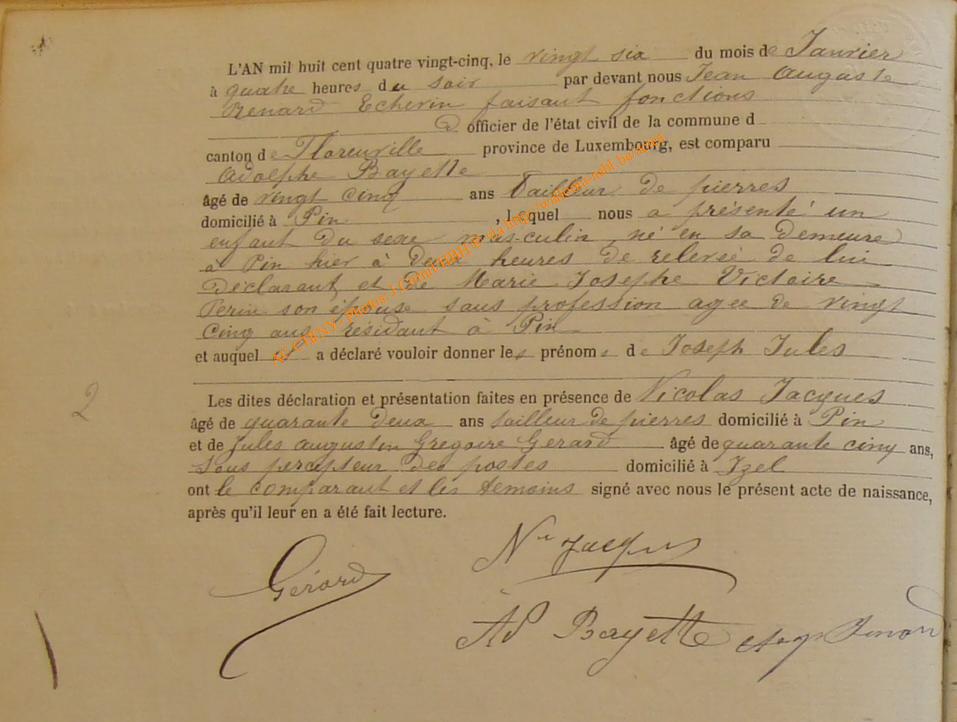 L'AN mil huit cent quatre vingt-cinq, le vingt six du mois de Janvier
à quatre heures du soir par devant nous Jean Auguste
Renard Echevin faisant fonctions
D officier de l'état civil de la commune d
canton de Florenville province de Luxembourg, est comparu
Adolphe Bayette
âgé de vingt cinq ans Tailleur de pierres
domicilié à Pin , lequel nous a présenté un
enfant du sexe masculin, né en sa demeure
à Pin hier à deux heures de relevée de lui
Déclarant, et de Marie Josephe Victoire
Perin son épouse sans profession agée de vingt
cinq ans résidant à Pin
et auquel a déclaré vouloir donner les prénoms de Joseph Jules
Les dites déclaration et présentation faites en présence de Nicolas Jacques
2
âgé de quarante deux ans tailleur de pierres domicilié à Pin
et de Jules Augustin Gregoire Gerard âgé de quarante cinq ans,
Sous percepteur des postes domicilié à Izel
ont le comparant et les temoins signé avec nous le présent acte de naissance,
après qu'il leur en a été fait lecture.
Gérard
Nas Jacques
Ad Bayette Aug Renard